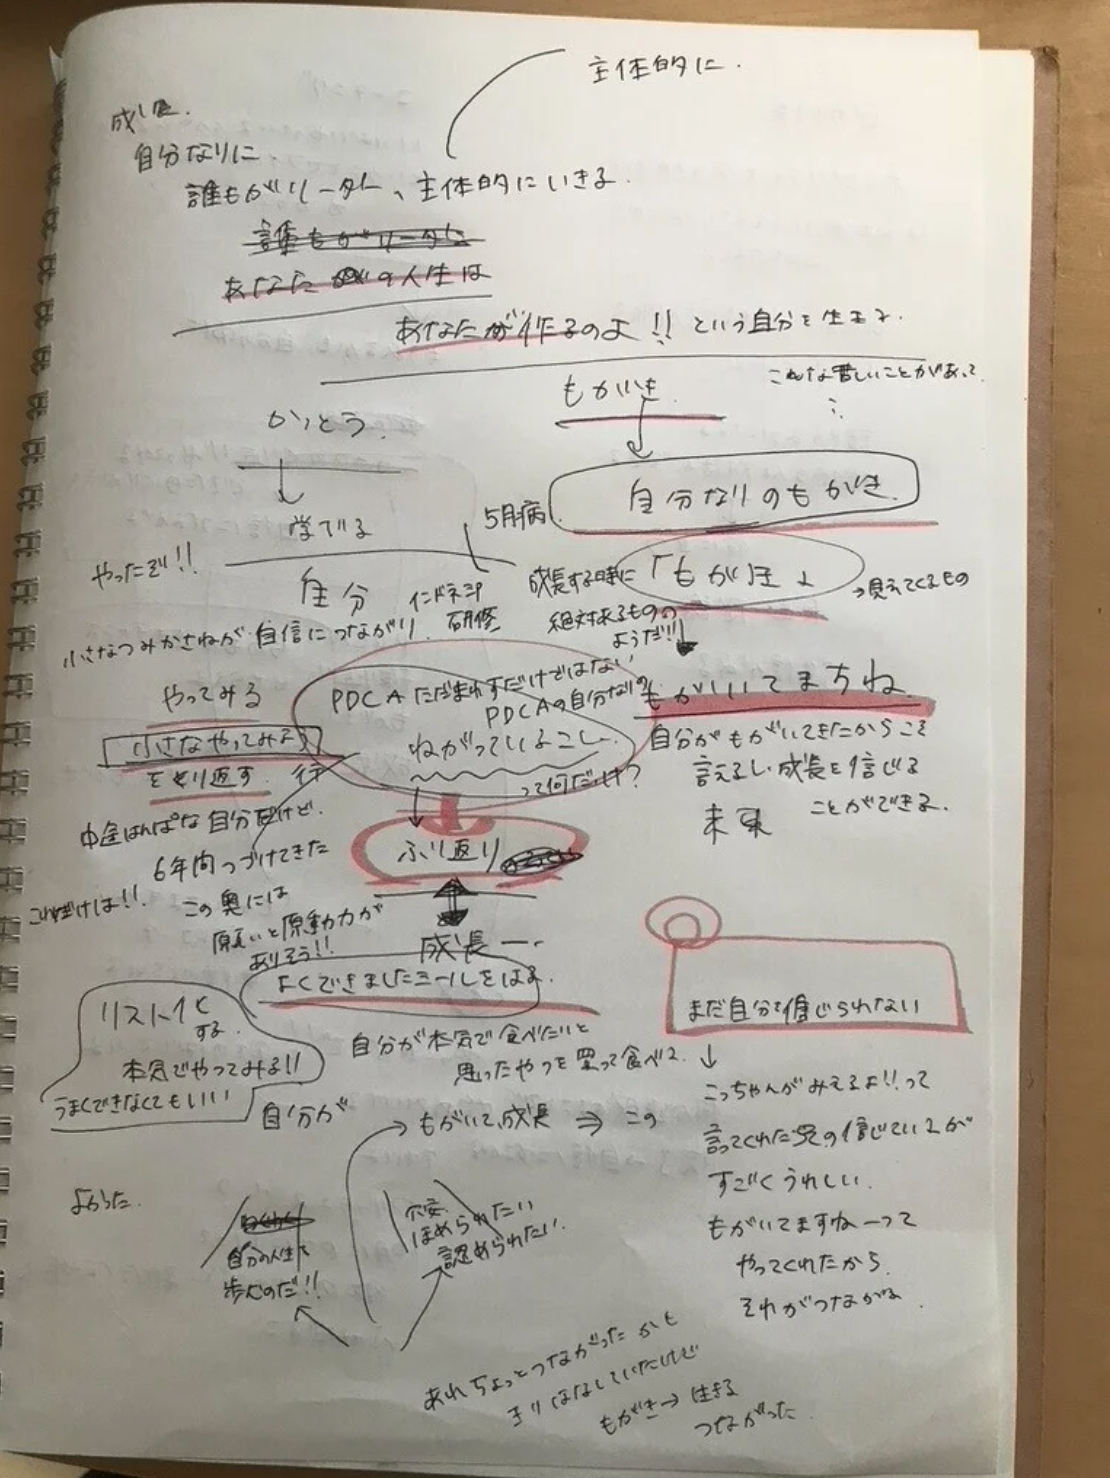 主体的に.
成長.
自分なりに
誰もがリーダー、主体的にいきる.
誰もがリーダーに
あなたの人生は
あなたが作るのよ!! という自分を生きる.
こんな苦しいことがあって
もがき.
かっとう.
自分なりのもがき.
5月病
学びる
やったぞ!!
自分
インドネシア
研修
成長する時に「もがき」
→見えてくるもの
絶対来るものの
ようだ!!
小さなつみかさねが自信につながり
やってみる
PDCAただまわすだけではない
PDCAの自分なりの
もがいてますね
小さなやってみよう
ねがっているよこし
自分がもがいてきたからこそ
をくり返す. 行
って何だっけ?
言えるし成長を信じる
未来 ことができる.
中途はんぱな自分だけど.
6年間つづけてきた
ふり返り
これだけは!!
この奥には
願いと原動力が
ありそう!!
成長一..
よくできましたシールをはる.
まだ自分を信じられない
リスト化
する.
本気でやってみる!!
うまくできなくてもいい
自分が本気で食べたいと
思ったやつを買って食べて.
こっちゃんがみえるよ!!って
自分が
→もがいて、成長 ⇒ この
言ってくれた 信じている が
すごくうれしい.
よかった.
自分の人生を
歩むのだ!!
不安.
ほめられたい
認められたい.
もがいてますねーって
やってくれたから.
それがつながる.
あれちょっとつながったかも
きりはなしていたけど
もがき→生きる
つながった